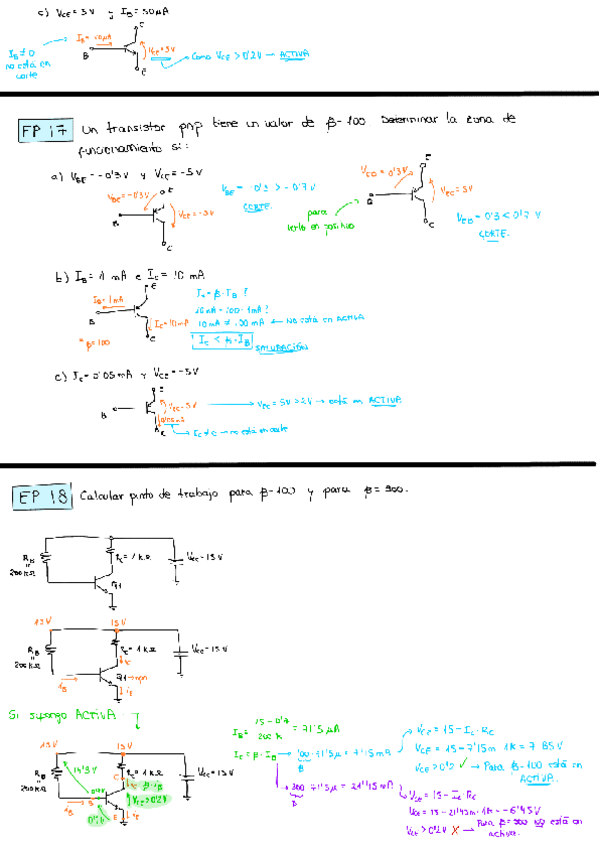 c) VCE = 5V y IB = 50μA
IB ≠ 0
no está en
corte
IB = 50μA
B
C
E
VCE = 5V
Como VCE > 0'2V → ACTIVA
EP 17
Un transistor pnp tiene un valor de β = 100. Determinar la zona de
funcionamiento si:
a) VBE = -0'3V y VCE = -5V
VBE = -0'3V
E
B
C
VCE = -5V
VBE = -0'3 > -0'7V
CORTE.
para
verlo en positivo
VEB = 0'3V
E
B
C
VEC = 5V
VEB = 0'3 < 0'7 V
CORTE.
b) IB = 1 mA e IC = 10 mA
IB = 1mA
E
B
C
IC = 10mA
* β = 100
IC = β · IB ?
10mA = 100 · 1mA?
10mA ≠ 100mA ← No está en ACTIVA
IC < β · IB
SATURACIÓN
c) IC = 0'05mA y VCE = -5V
E
B
C
VEC = 5V → está en ACTIVA
IC ≠ 0 → no está en corte
EP 18
Calcular punto de trabajo para β = 100 y para β = 300.
RB
200kΩ
RC = 1kΩ
VCC = 15V
Q1
15V
15V
RB
200kΩ
RC = 1kΩ
VCC = 15V
IC
Q1 → npn
IB
IE
Si supongo ACTIVA
15V
15V
14'3V
RB
200kΩ
RC = 1kΩ
VCC = 15V
C
β · IB
VCE > 0'2V
B
E
IB
IE
0'7V
IB = 15 - 0'7 / 200k = 71'5 μA
IC = β · IB → 100 · 71'5μ = 7'15mA
β
300 · 71'5μ = 21'45mA
β
VCE = 15 - IC · RC
VCE = 15 - 7'15m · 1k = 7'85V
VCE > 0'2 ✓ → Para β = 100 está en
ACTIVA.
VCE = 15 - IC · RC
VCE = 15 - 21'45m · 1k = -6'45V
VCE > 0'2V X → Para β = 300 no está en
activa.